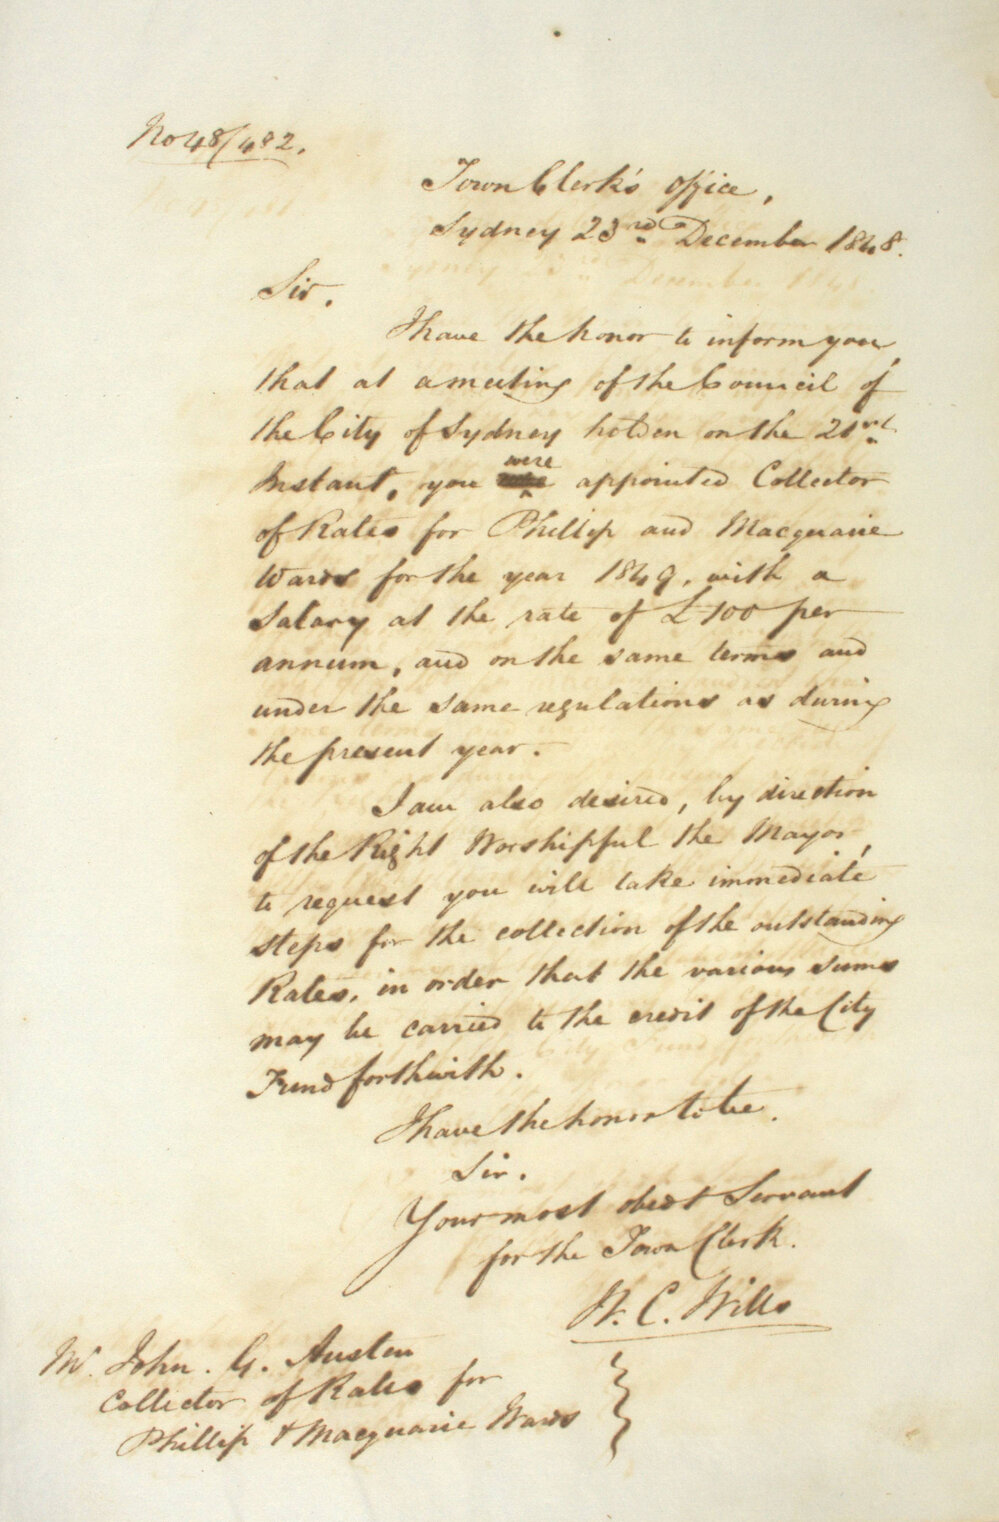 No 48/482.
Town Clerk's Office,
Sydney 23rd December 1848.
Sir.
I have the honor to inform you,
that at a meeting of the Council of
the City of Sydney holden on the 21st
Instant, you were appointed Collector
of Rates for Phillip and Macquarie
Wards for the year 1849, with a
Salary at the rate of £100 per
annum, and on the same terms and
under the same regulations as during
the present year.
I am also desired, by direction
of the Right Worshipful the Mayor,
to request you will take immediate
steps for the collection of the outstanding
Rates, in order that the various sums
may be carried to the credit of the City
Fund forthwith.
I have the honor to be.
Sir.
Your most obedt Servant
for the Town Clerk.
W. C. Wills
Mr. John. G. Austen
Collector of Rates for
Phillip & Macquarie Wards